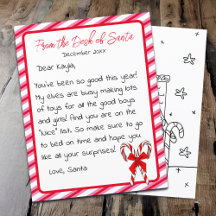 From the Desk of Santa
December 20XX
Dear Kayla,
You've been so good this year!
My elves are busy making lots
of toys for all the good boys
and girls! And you are on the
"nice" list. So make sure to go
to bed on time and hope you
like all your surprises!
Love, Santa